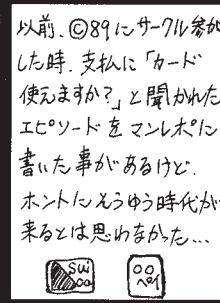 以前、Ⓒ89にサークル参加
した時、支払に「カード
使えますか？」と聞かれた
エピソードをマンレポに
書いた事があるけど、
ホントにそうゆう時代が
来るとは思わなかった…
Sui
ca
○○
ペイ